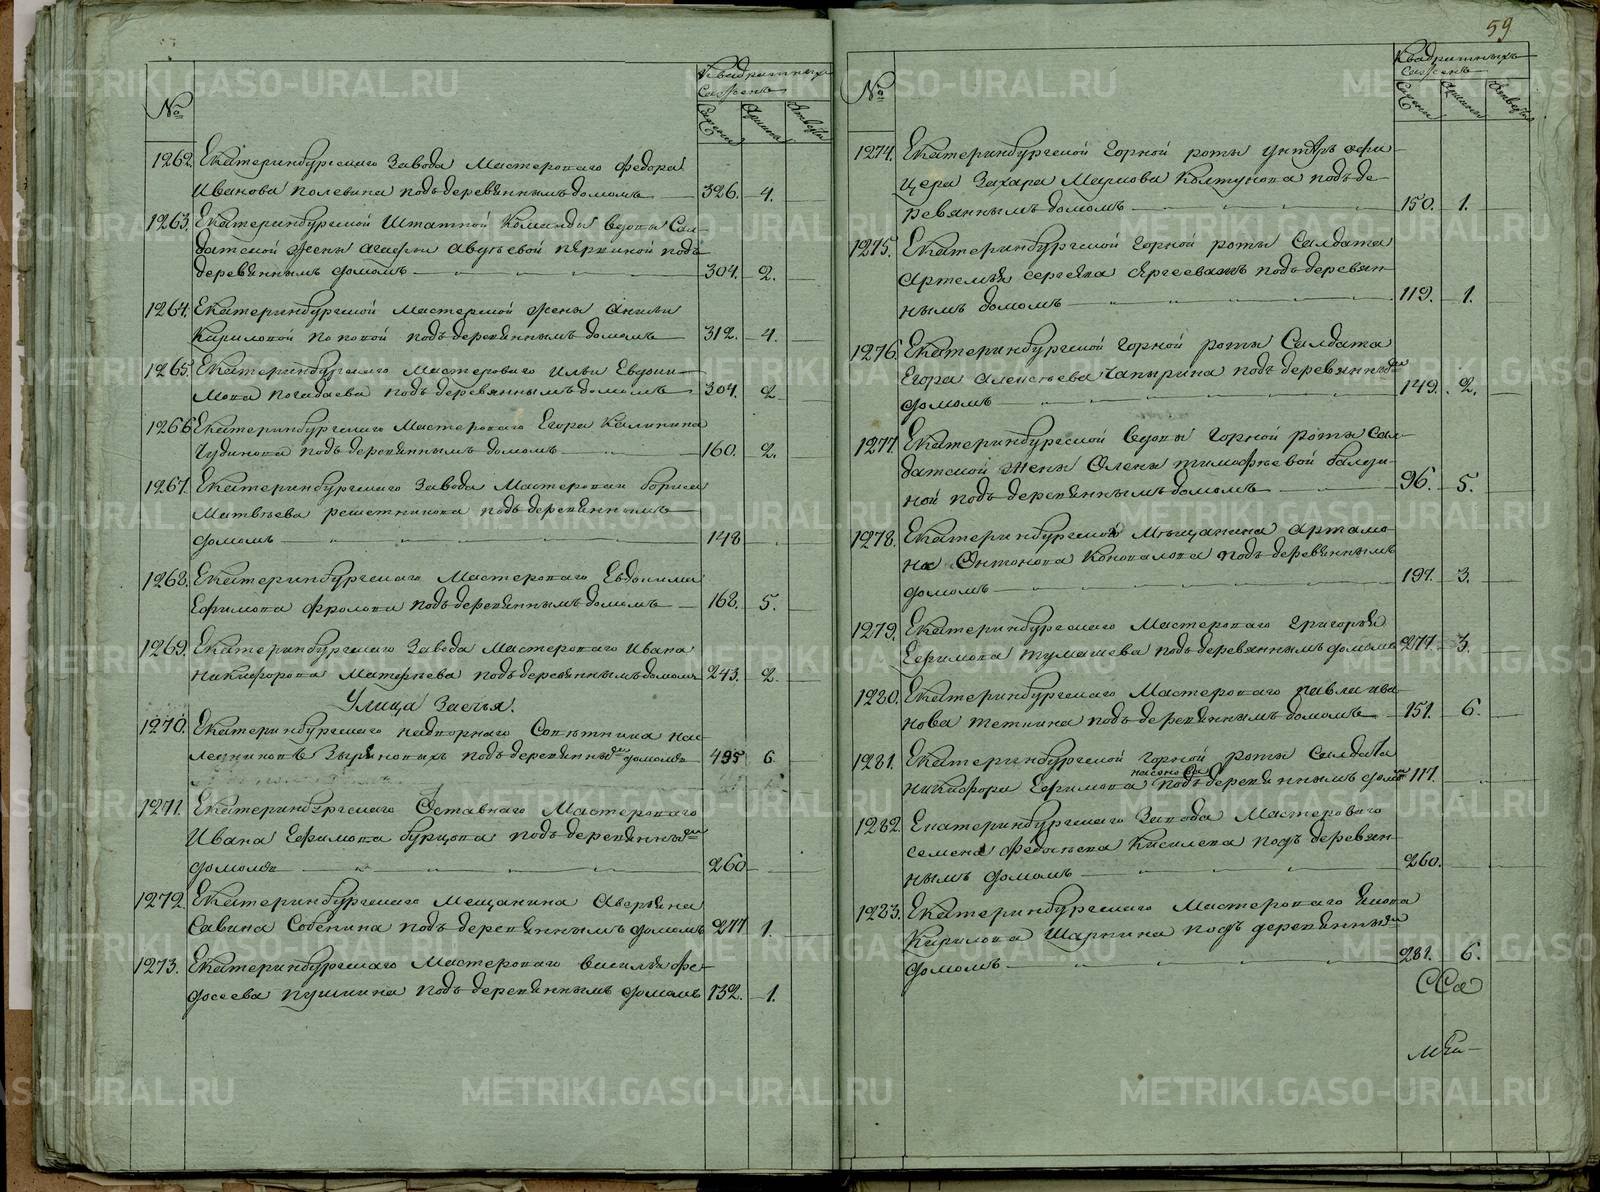 59
№
Квадратныхъ
Сажень
Сажени
Аршины
1262. Екатеринбургскаго Завода Мастероваго Федора
Иванова полевина подъ деревяннымъ домомъ 326. 4.
1263. Екатеринбургской Штатной Команды вдовы Сал-
датской жены агафьи авдеевой подъ
деревяннымъ домомъ 304. 2.
1264. Екатеринбургской Мастерской жены
Кириловой поповой подъ деревяннымъ домомъ 312. 4.
1265. Екатеринбургскаго Мастероваго Ильи Евдоки-
мова погадаева подъ деревяннымъ домомъ 304. 2
1266. Екатеринбургскаго Мастероваго Егора Калинина
Чудинова подъ деревяннымъ домомъ 160. 2.
1267. Екатеринбургскаго Завода Мастероваго бориса
Матвѣева решетникова подъ деревяннымъ
домомъ 148
1268. Екатеринбургскаго Мастероваго Евдокима
Ефимова фролова подъ деревяннымъ домомъ 168. 5.
1269. Екатеринбургскаго Завода Мастероваго Ивана
никифорова Матфиева подъ деревяннымъ домомъ 243. 2.
Улица Засѣчья.
1270. Екатеринбургскаго надворнаго Совѣтника нас-
ледниковъ Зыряновыхъ подъ деревяннымъ домомъ 495 6
1271. Екатеринбургскаго Оставнаго Мастероваго
Ивана Ефимова бурцова подъ деревяннымъ
домомъ 260
1272. Екатеринбургскаго Мещанина Аверьяна
Савина Собенина подъ деревяннымъ домомъ 277 1.
1273. Екатеринбургскаго Мастероваго василья фе-
досеева пушкина подъ деревяннымъ домомъ 132. 1.
№
Квадратныхъ
Сажень
Сажени
Аршины
1274. Екатеринбургской Горной роты унтеръ офи-
цера Захара Маркова Колтунова подъ де-
ревяннымъ домомъ 150. 1.
1275. Екатеринбургской Горной роты Салдата
Артемья сергѣева подъ деревян-
нымъ домомъ 119. 1.
1276. Екатеринбургской Горной роты Салдата
Егора алексѣева Чапырина подъ деревяннымъ
домомъ 149. 2.
1277. Екатеринбургской вдовы Горной роты Сал-
датской жены Олены тимофѣевой
ной подъ деревяннымъ домомъ 96. 5.
1278. Екатеринбургской Мѣщанина Артамо-
на Онтонова Коновалова подъ деревяннымъ
домомъ 197. 3.
1279. Екатеринбургскаго Мастероваго Григорья
Ефимова тумашева подъ деревяннымъ домомъ 277. 3.
1280. Екатеринбургскаго Мастероваго павла ива-
нова теткина подъ деревяннымъ домомъ 151. 6.
1281. Екатеринбургской Горной роты Салдата
никифора Ефимова подъ деревяннымъ домомъ 117.
1282. Екатеринбургскаго Завода Мастероваго
семена Кисилева подъ деревян-
нымъ домомъ 260.
1283. Екатеринбургскаго Мастероваго якова
Кирилова Шаркина подъ деревяннымъ
домомъ 281. 6.
METRIKI.GASO-URAL.RU